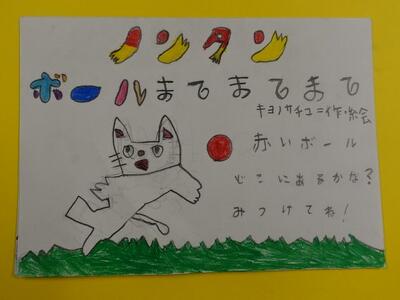 ノンタン
ボールまてまてまて
キヨノサチコ=作・絵
赤いボール
どこにあるかな?
みつけてね!